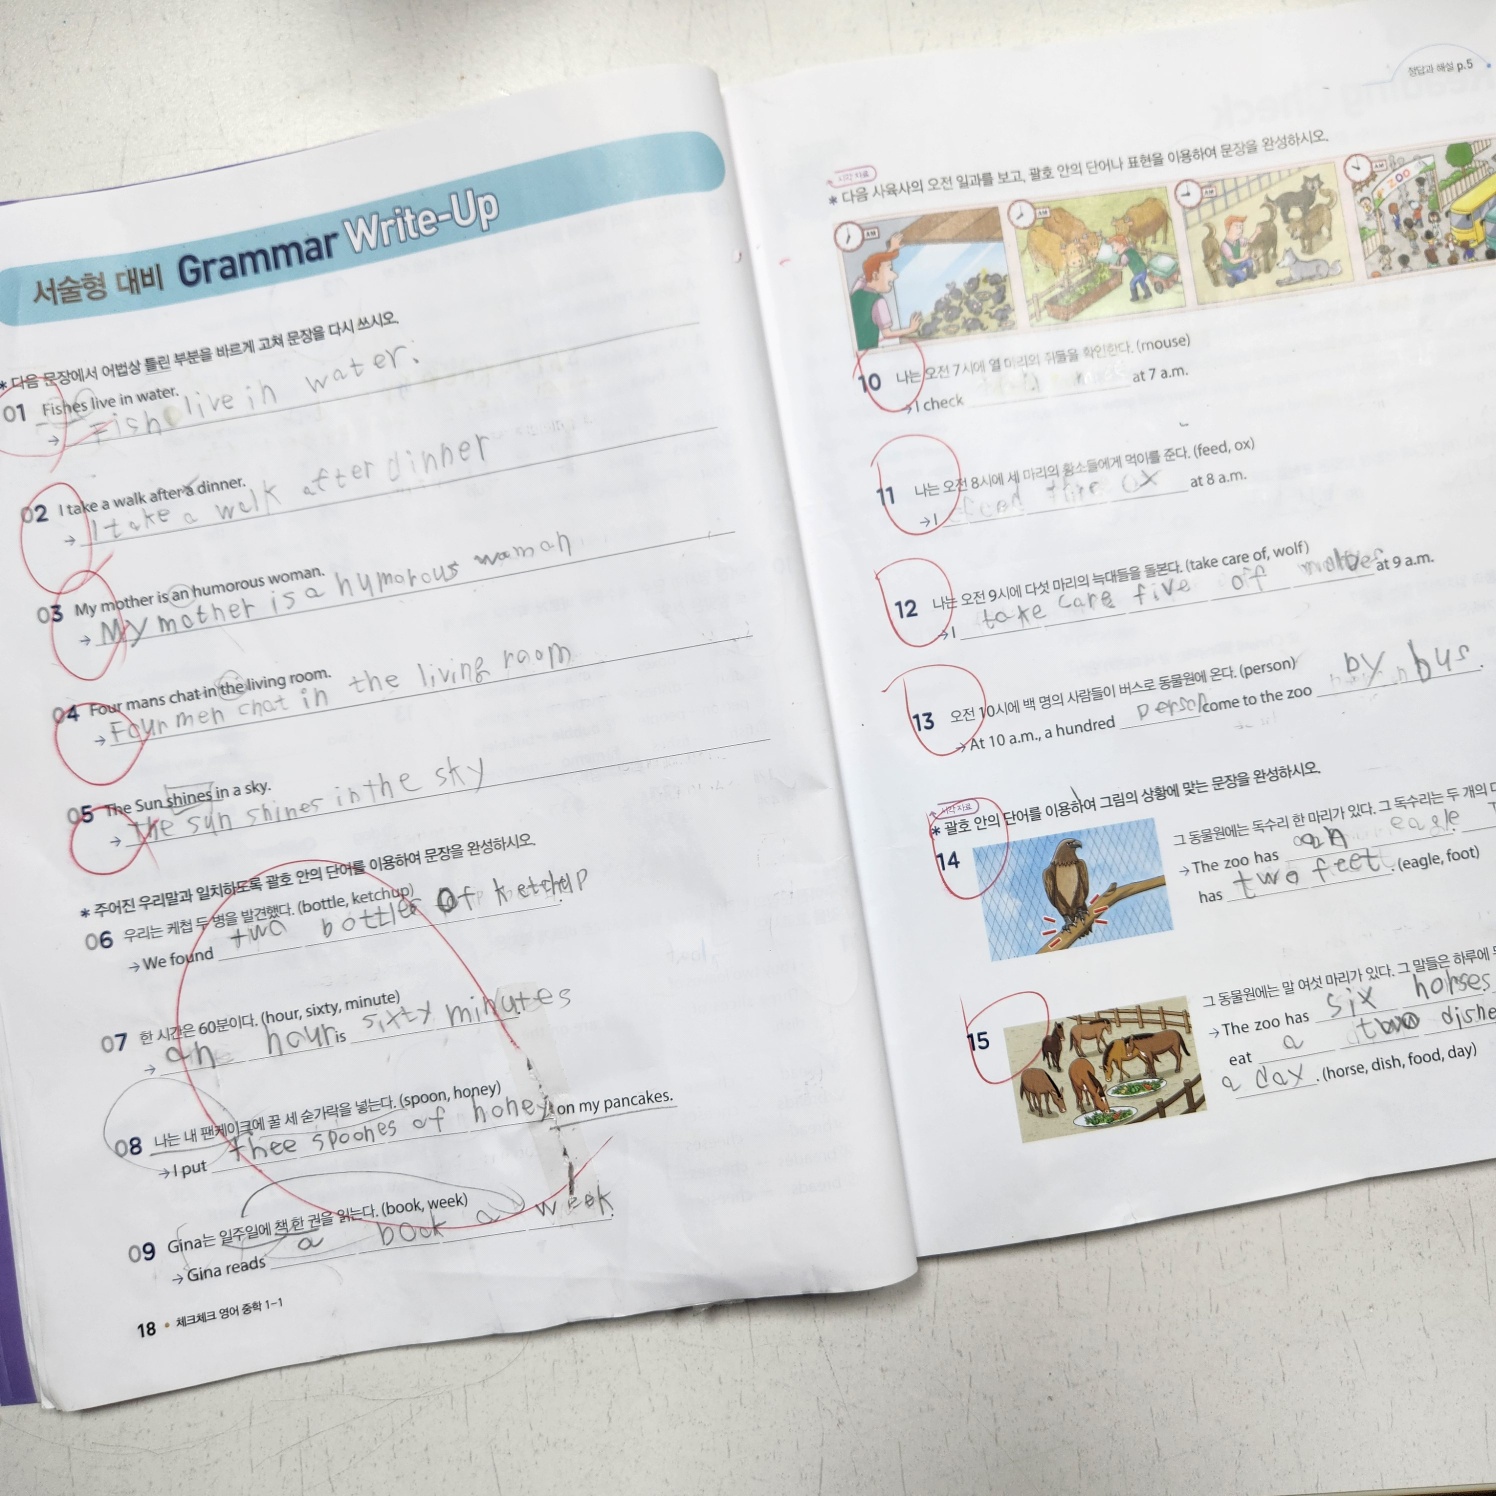 서술형 대비 Grammar Write-Up
* 다음 문장에서 어법상 틀린 부분을 바르게 고쳐 문장을 다시 쓰시오.
01 Fishes live in water.
→ Fish live in water.
02 I take a walk after a dinner.
→ I take a walk after dinner
03 My mother is an humorous woman.
→ My mother is a humorous woman
04 Four mans chat in the living room.
→ Four men chat in the living room
05 The Sun shines in a sky.
→ the sun shines in the sky
* 주어진 우리말과 일치하도록 괄호 안의 단어를 이용하여 문장을 완성하시오.
06 우리는 케첩 두 병을 발견했다. (bottle, ketchup)
→ We found two bottles of ketchup.
07 한 시간은 60분이다. (hour, sixty, minute)
→ an hour is sixty minutes
08 나는 내 팬케이크에 꿀 세 숟가락을 넣는다. (spoon, honey)
→ I put thee spoones of honey on my pancakes.
09 Gina는 일주일에 책 한 권을 읽는다. (book, week)
→ Gina reads a book a week.
18 • 체크체크 영어 중학 1-1
정답과 해설 p.5
시각 자료
* 다음 사육사의 오전 일과를 보고, 괄호 안의 단어나 표현을 이용하여 문장을 완성하시오.
AM AM AM AM
ZOO
10 나는 오전 7시에 열 마리의 쥐들을 확인한다. (mouse)
→ I check at 7 a.m.
11 나는 오전 8시에 세 마리의 황소들에게 먹이를 준다. (feed, ox)
→ I feed ox at 8 a.m.
12 나는 오전 9시에 다섯 마리의 늑대들을 돌본다. (take care of, wolf)
→ I take care five off at 9 a.m.
13 오전 10시에 백 명의 사람들이 버스로 동물원에 온다. (person)
→ At 10 a.m., a hundred person come to the zoo by bus.
시각 자료
* 괄호 안의 단어를 이용하여 그림의 상황에 맞는 문장을 완성하시오.
14 그 동물원에는 독수리 한 마리가 있다. 그 독수리는 두 개의
→ The zoo has an eagle.
has two feet. (eagle, foot)
15 그 동물원에는 말 여섯 마리가 있다. 그 말들은 하루에
→ The zoo has six horses
eat a two dishe
a day. (horse, dish, food, day)